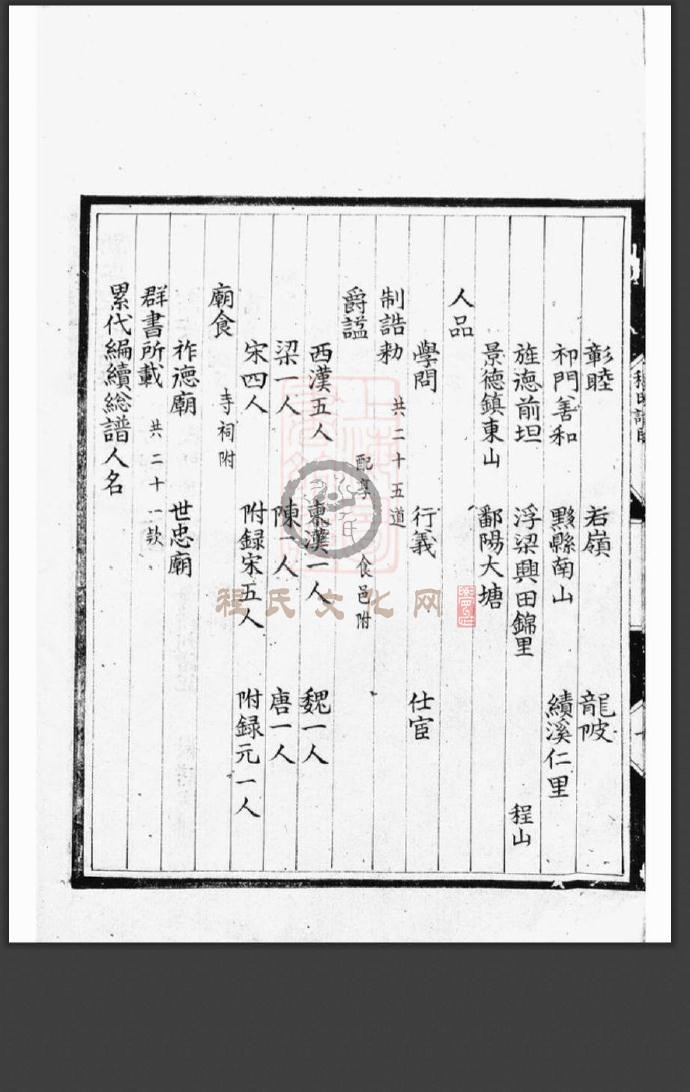 彰睦 岩嶺 龍陂
祁門善和 黟縣南山 績溪仁里
旌德前坦 浮梁興田錦里 程山
景德鎮東山 鄱陽大塘
人品
學問 行義 仕宦
制誥勅 共二十五道
爵諡 配享 食邑附
西漢五人 東漢一人 魏一人
梁一人 陳一人 唐一人
宋四人 附録宋五人 附録元一人
廟食 寺祠附
祚德廟 世忠廟
群書所載 共二十一款
累代編續総譜人名
程氏文化网